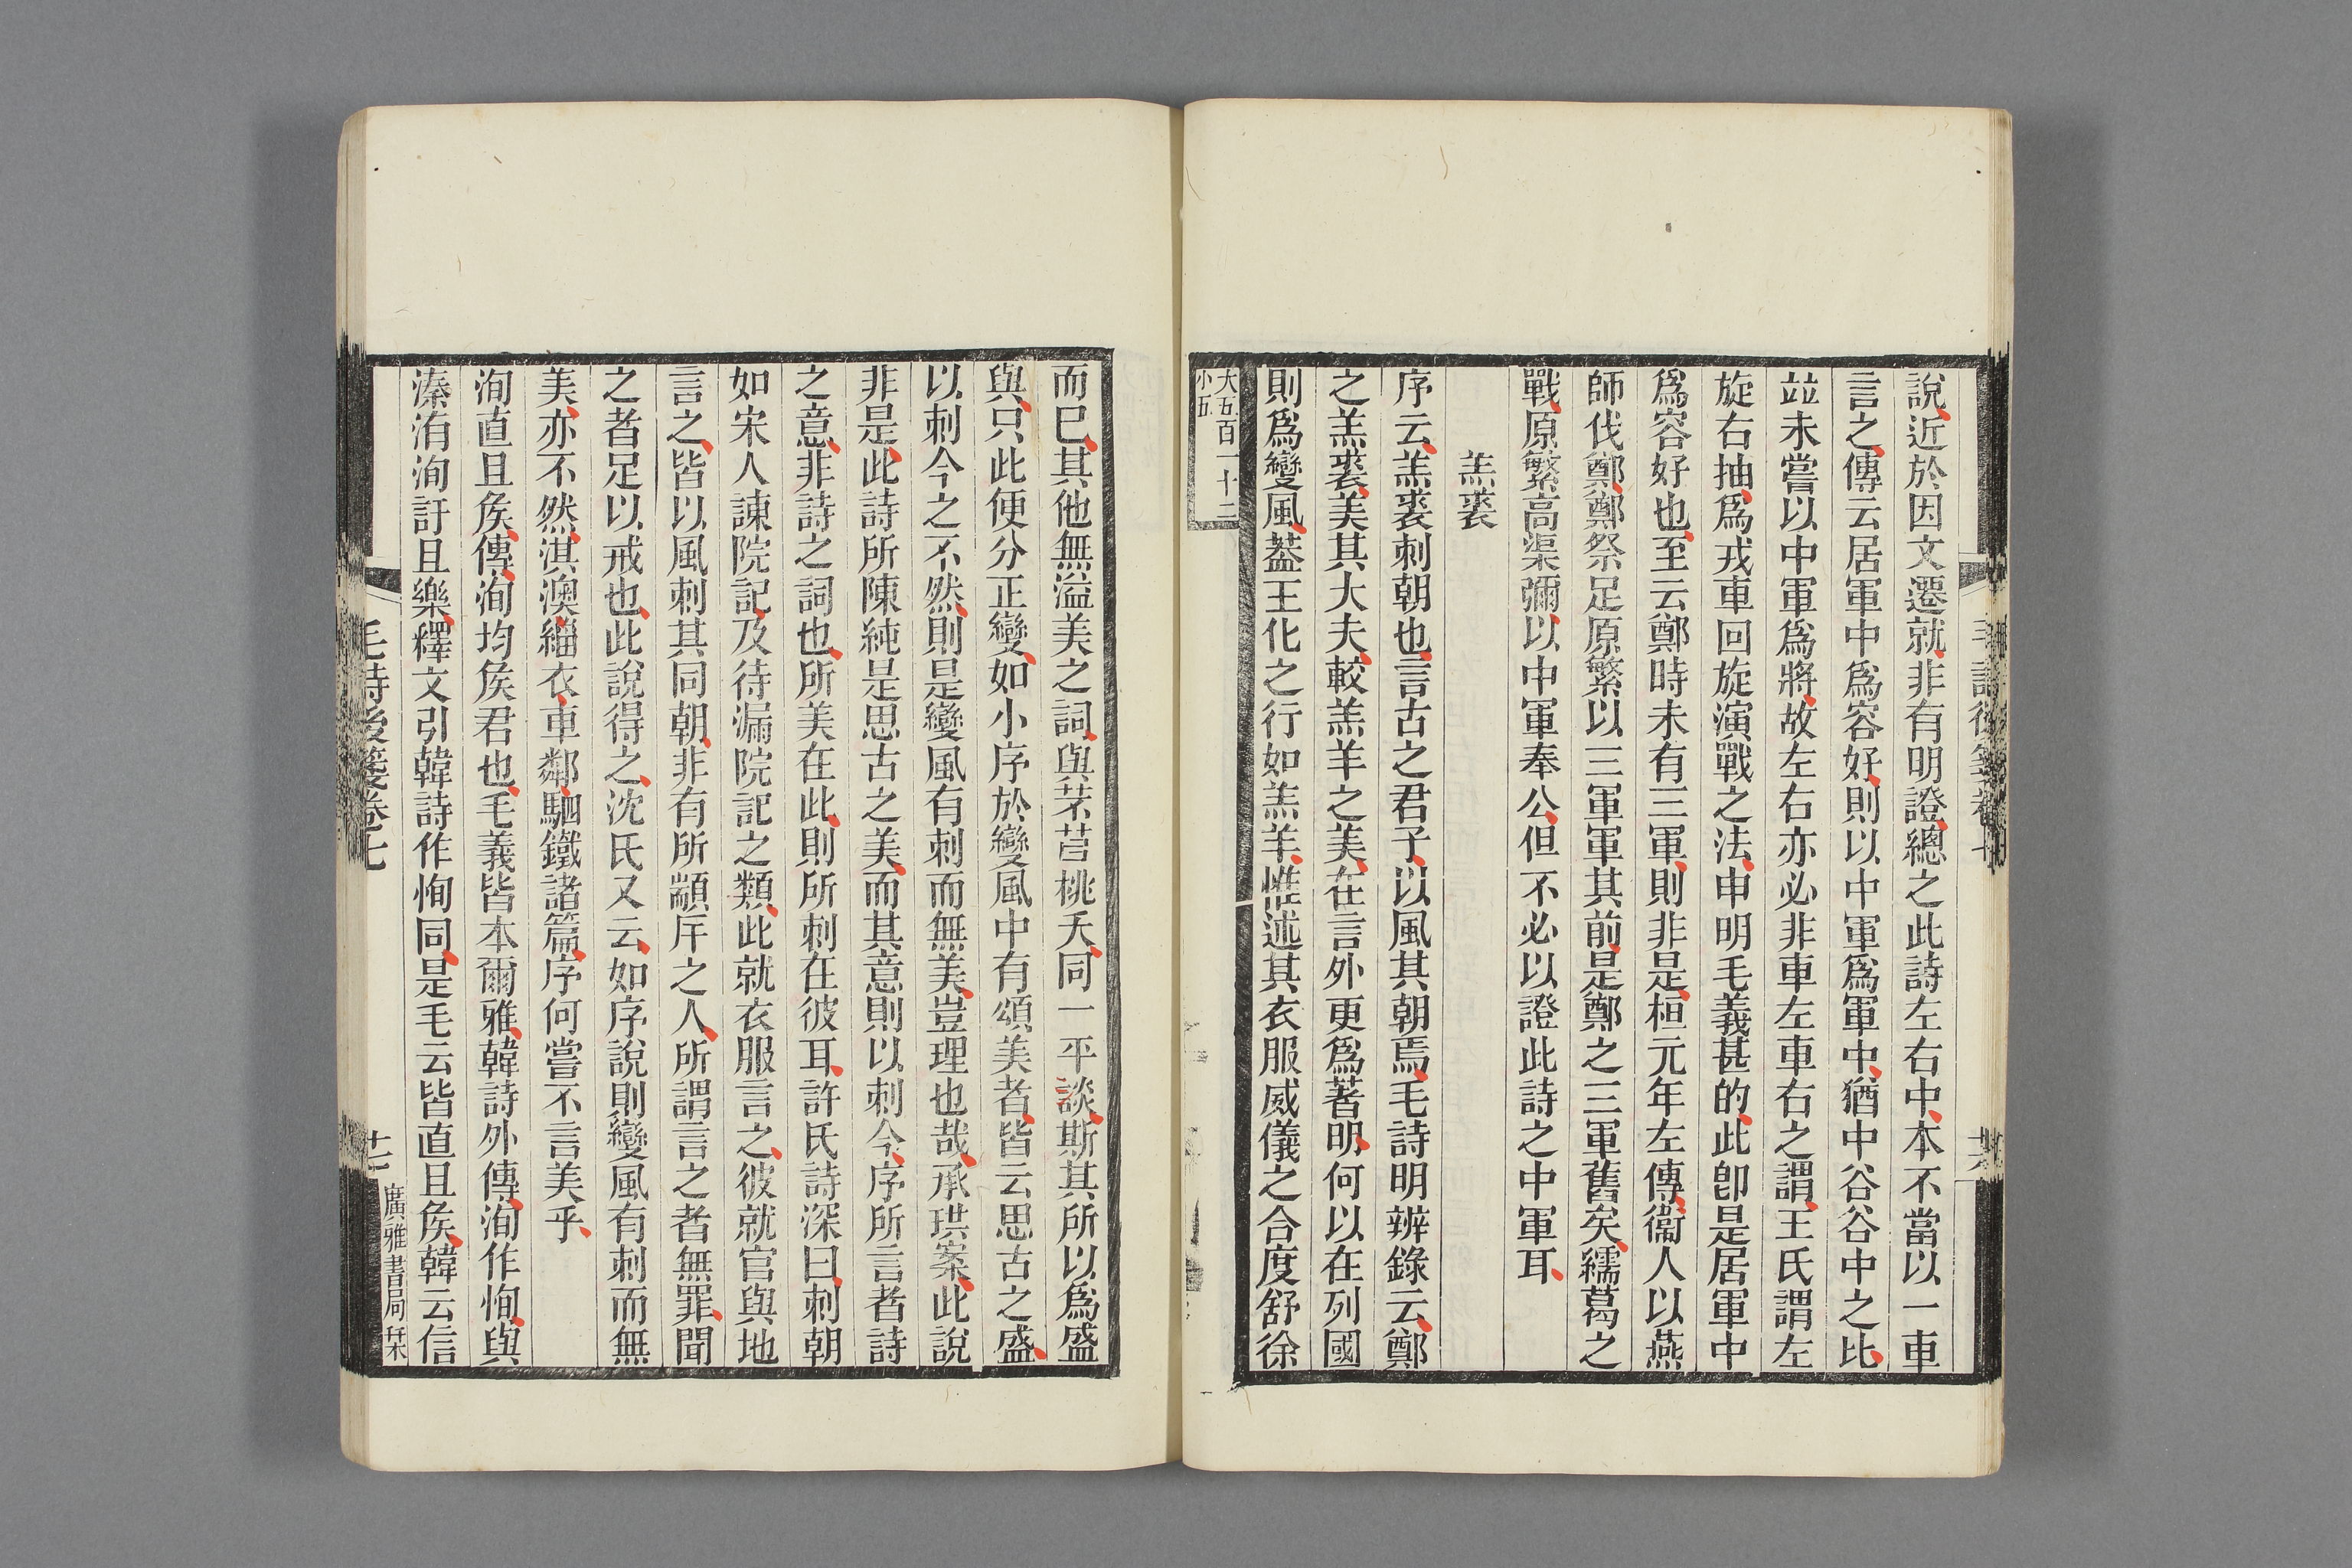 說近於因文遷就非有明證總之此詩左右中本不當以一車
言之傳云居軍中爲容好則以中軍爲軍中猶中谷谷中之比
竝未嘗以中軍爲將故左右亦必非車左車右之謂王氏謂左
旋右抽爲戎車回旋演戰之法申明毛義甚的此卽是居軍中
爲容好也至云鄭時未有三軍則非是桓元年左傳衞人以燕
師伐鄭鄭祭足原繁以三軍軍其前是鄭之三軍舊矣繻葛之
戰原繁高渠彌以中軍奉公但不必以證此詩之中軍耳
羔裘
序云羔裘刺朝也言古之君子以風其朝焉毛詩明辨錄云鄭
之羔裘美其大夫較羔羊之美在言外更爲著明何以在列國
則爲變風葢王化之行如羔羊惟述其衣服威儀之合度舒徐
大五百一十二
小五
而巳其他無溢美之詞與芣苢桃夭同一平談斯其所以爲盛
與只此便分正變如小序於變風中有頌美者皆云思古之盛
以刺今之不然則是變風有刺而無美豈理也哉承珙案此說
非是此詩所陳純是思古之美而其意則以刺今序所言者詩
之意非詩之詞也所美在此則所刺在彼耳許氏詩深曰刺朝
如宋人諫院記及待漏院記之類此就衣服言之彼就官與地
言之皆以風刺其同朝非有所顓斥之人所謂言之者無罪聞
之者足以戒也此說得之沈氏又云如序說則變風有刺而無
美亦不然淇澳緇衣車鄰駟鐵諸篇序何嘗不言美乎
洵直且矦傳洵均矦君也毛義皆本爾雅韓詩外傳洵作恂與
溱洧洵訏且樂釋文引韓詩作恂同是毛云皆直且矦韓云信
毛詩後箋卷七
廣雅書局栞